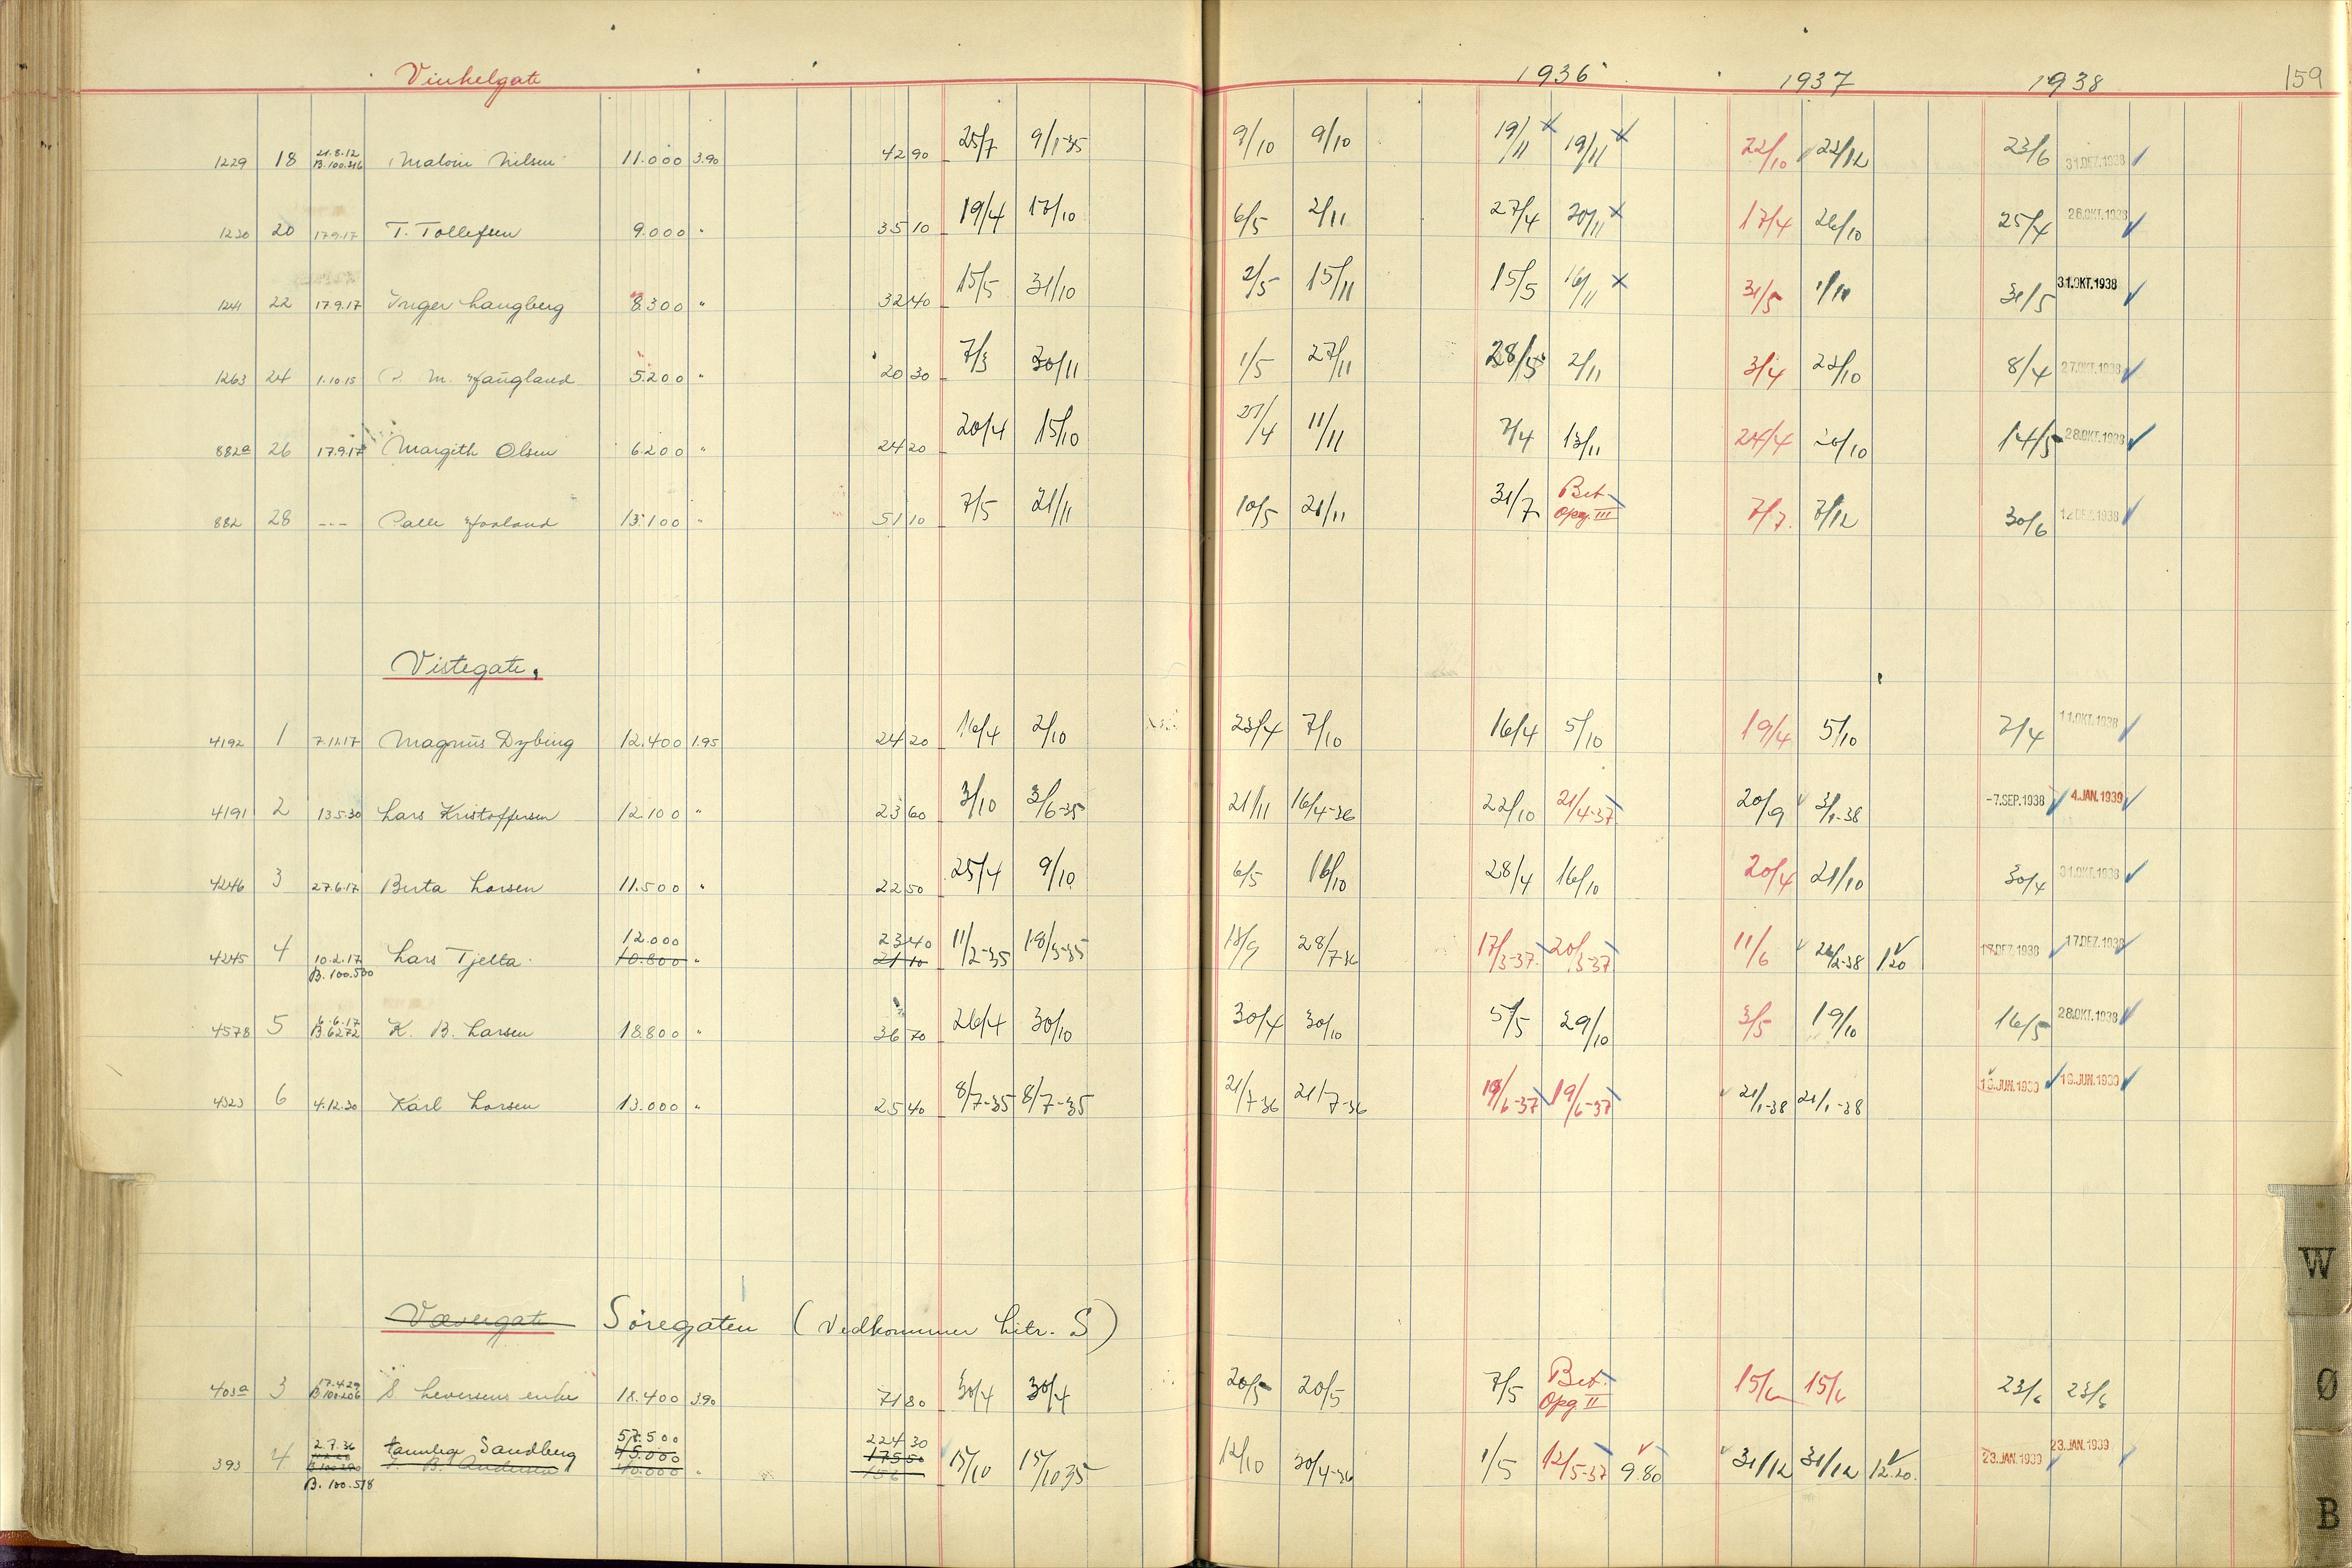 Vinkelgate 1936 1937 1938 159
1229 18 21.8.12 B.100.316 Malom Nilsen 11.000 3.90 42 90 25/7 9/1-35 9/10 9/10 19/11 x 19/11 x 22/10 22/12 23/6 31.DEZ.1938
1230 20 17.9.17 T. Tollefsen 9.000 " 35 10 19/4 17/10 6/5 2/11 27/4 20/11 x 17/4 26/10 25/4 26.OKT.1938
1241 22 17.9.17 Inger Langberg 8.300 " 32 40 15/5 31/10 2/5 15/11 15/5 16/11 x 31/5 1/11 31/5 31.OKT.1938
1263 24 1.10.15 M. Haugland 5.200 " 20 30 7/3 30/11 1/5 27/11 28/5 2/11 3/4 23/10 8/4 27.OKT.1938
882a 26 17.9.17 Margith Olsen 6.200 " 24 20 20/4 15/10 27/4 11/11 7/4 13/11 24/4 20/10 14/5 28.OKT.1938
882 28 --- Palle Haaland 13.100 " 51 10 7/5 21/11 10/5 21/11 31/7 Bet. Opg. III 7/7 7/12 30/6 12.DEZ.1938
Vistegate.
4192 1 7.11.17 Magnus Dybing 12.400 1.95 24 20 16/4 2/10 23/4 7/10 16/4 5/10 19/4 5/10 7/4 11.OKT.1938
4191 2 13.5.30 Lars Kristoffersen 12.100 " 23 60 3/10 3/6-35 21/11 16/4-36 22/10 21/4-37 20/9 3/1-38 -7.SEP.1938 4.JAN.1939
4246 3 27.6.17 Berta Larsen 11.500 " 22 50 25/4 9/10 6/5 16/10 28/4 16/10 20/4 21/10 30/4 31.OKT.1938
12.000 23 40
4245 4 10.2.17 B.100.500 Lars Tjelta 10.800 " 21 10 11/2-35 18/3-35 18/9 28/7-36 17/3-37 20/3-37 11/6 26/2-38 1.20 17.DEZ.1938 17.DEZ.1938
4578 5 6.6.17 B.6272 K. B. Larsen 18.800 " 36 70 26/4 30/10 30/4 30/10 5/5 29/10 3/5 19/10 16/5 28.OKT.1938
4323 6 4.12.30 Karl Larsen 13.000 " 25 40 8/7-35 8/7-35 21/7-36 21/7-36 19/6-37 19/6-37 21/1-38 21/1-38 19.JUN.1939 19.JUN.1939
Vævergate Søregaten (Vedkommer Litr. S)
403a 3 17.4.29 B.100.206 S. Leversens enke 18.400 3.90 71 80 30/4 30/4 20/5 20/5 7/5 Bet. Opg. II 15/6 15/6 23/6 23/6
2.7.36 tannlege Sandberg 57.500 224 30
45.000 175 50
393 4 B. Andersen 40.000 " 156 15/10 15/10 35 12/10 30/4-36 1/5 12/5-37 9.80 31/12 31/12 12.20 23.JAN.1939 23.JAN.1939
B. 100.518
W
Ø
B